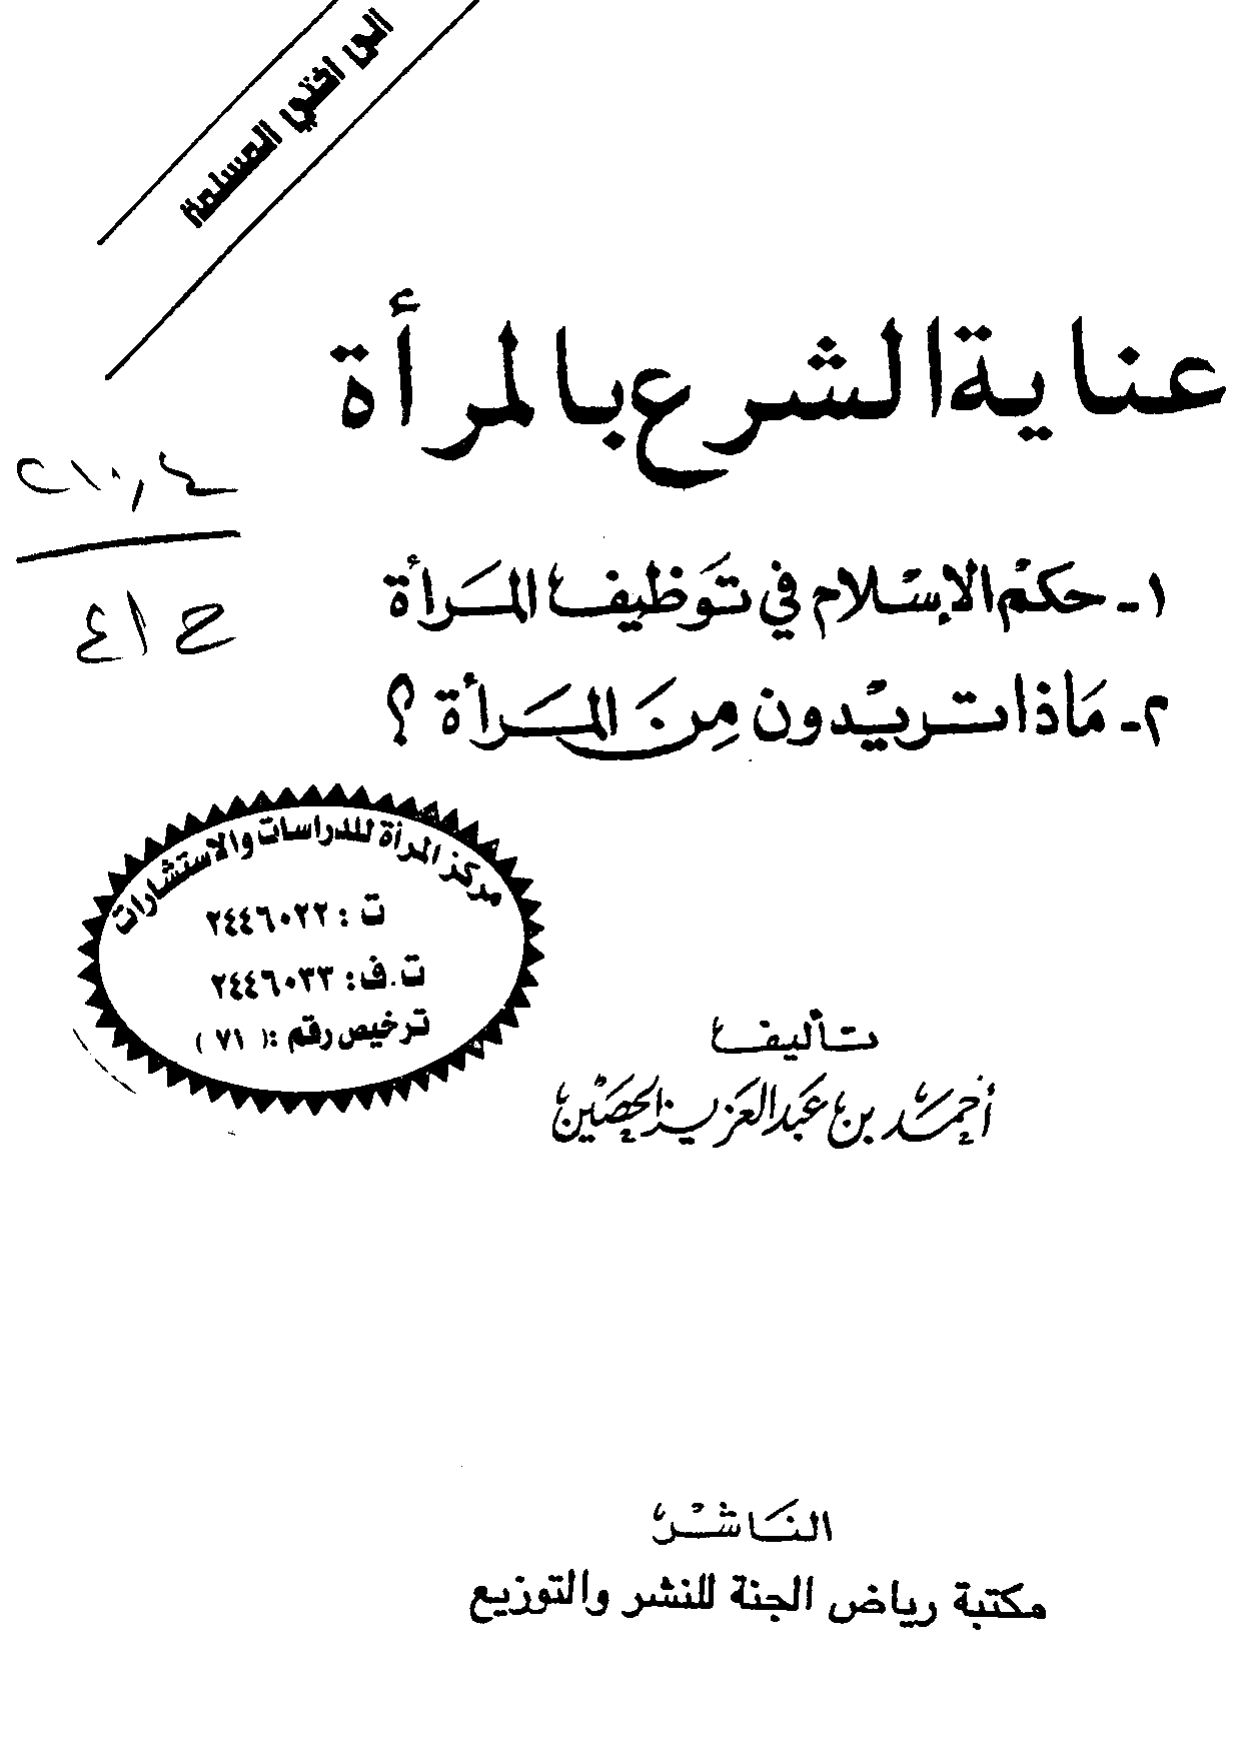 الى اختي المسلمة
عناية الشرع بالمرأة
٢١٠,٤
ح ا ع
١- حكم الإسلام في توظيف المرأة
٢- ماذا تريدون من المرأة ؟
مركز المرأة للدراسات والاستشارات
ت : ٢٤٤٦٠٢٢
ت.ف: ٢٤٤٦٠٣٣
ترخيص رقم :( ٧١ )
تأليف
أحمد بن عبد العزيز الحصين
الناشر
مكتبة رياض الجنة للنشر والتوزيع